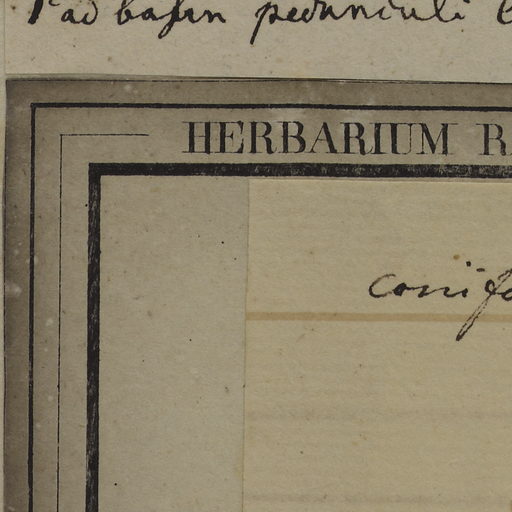 ad basin pedunculi
HERBARIUM R
conif